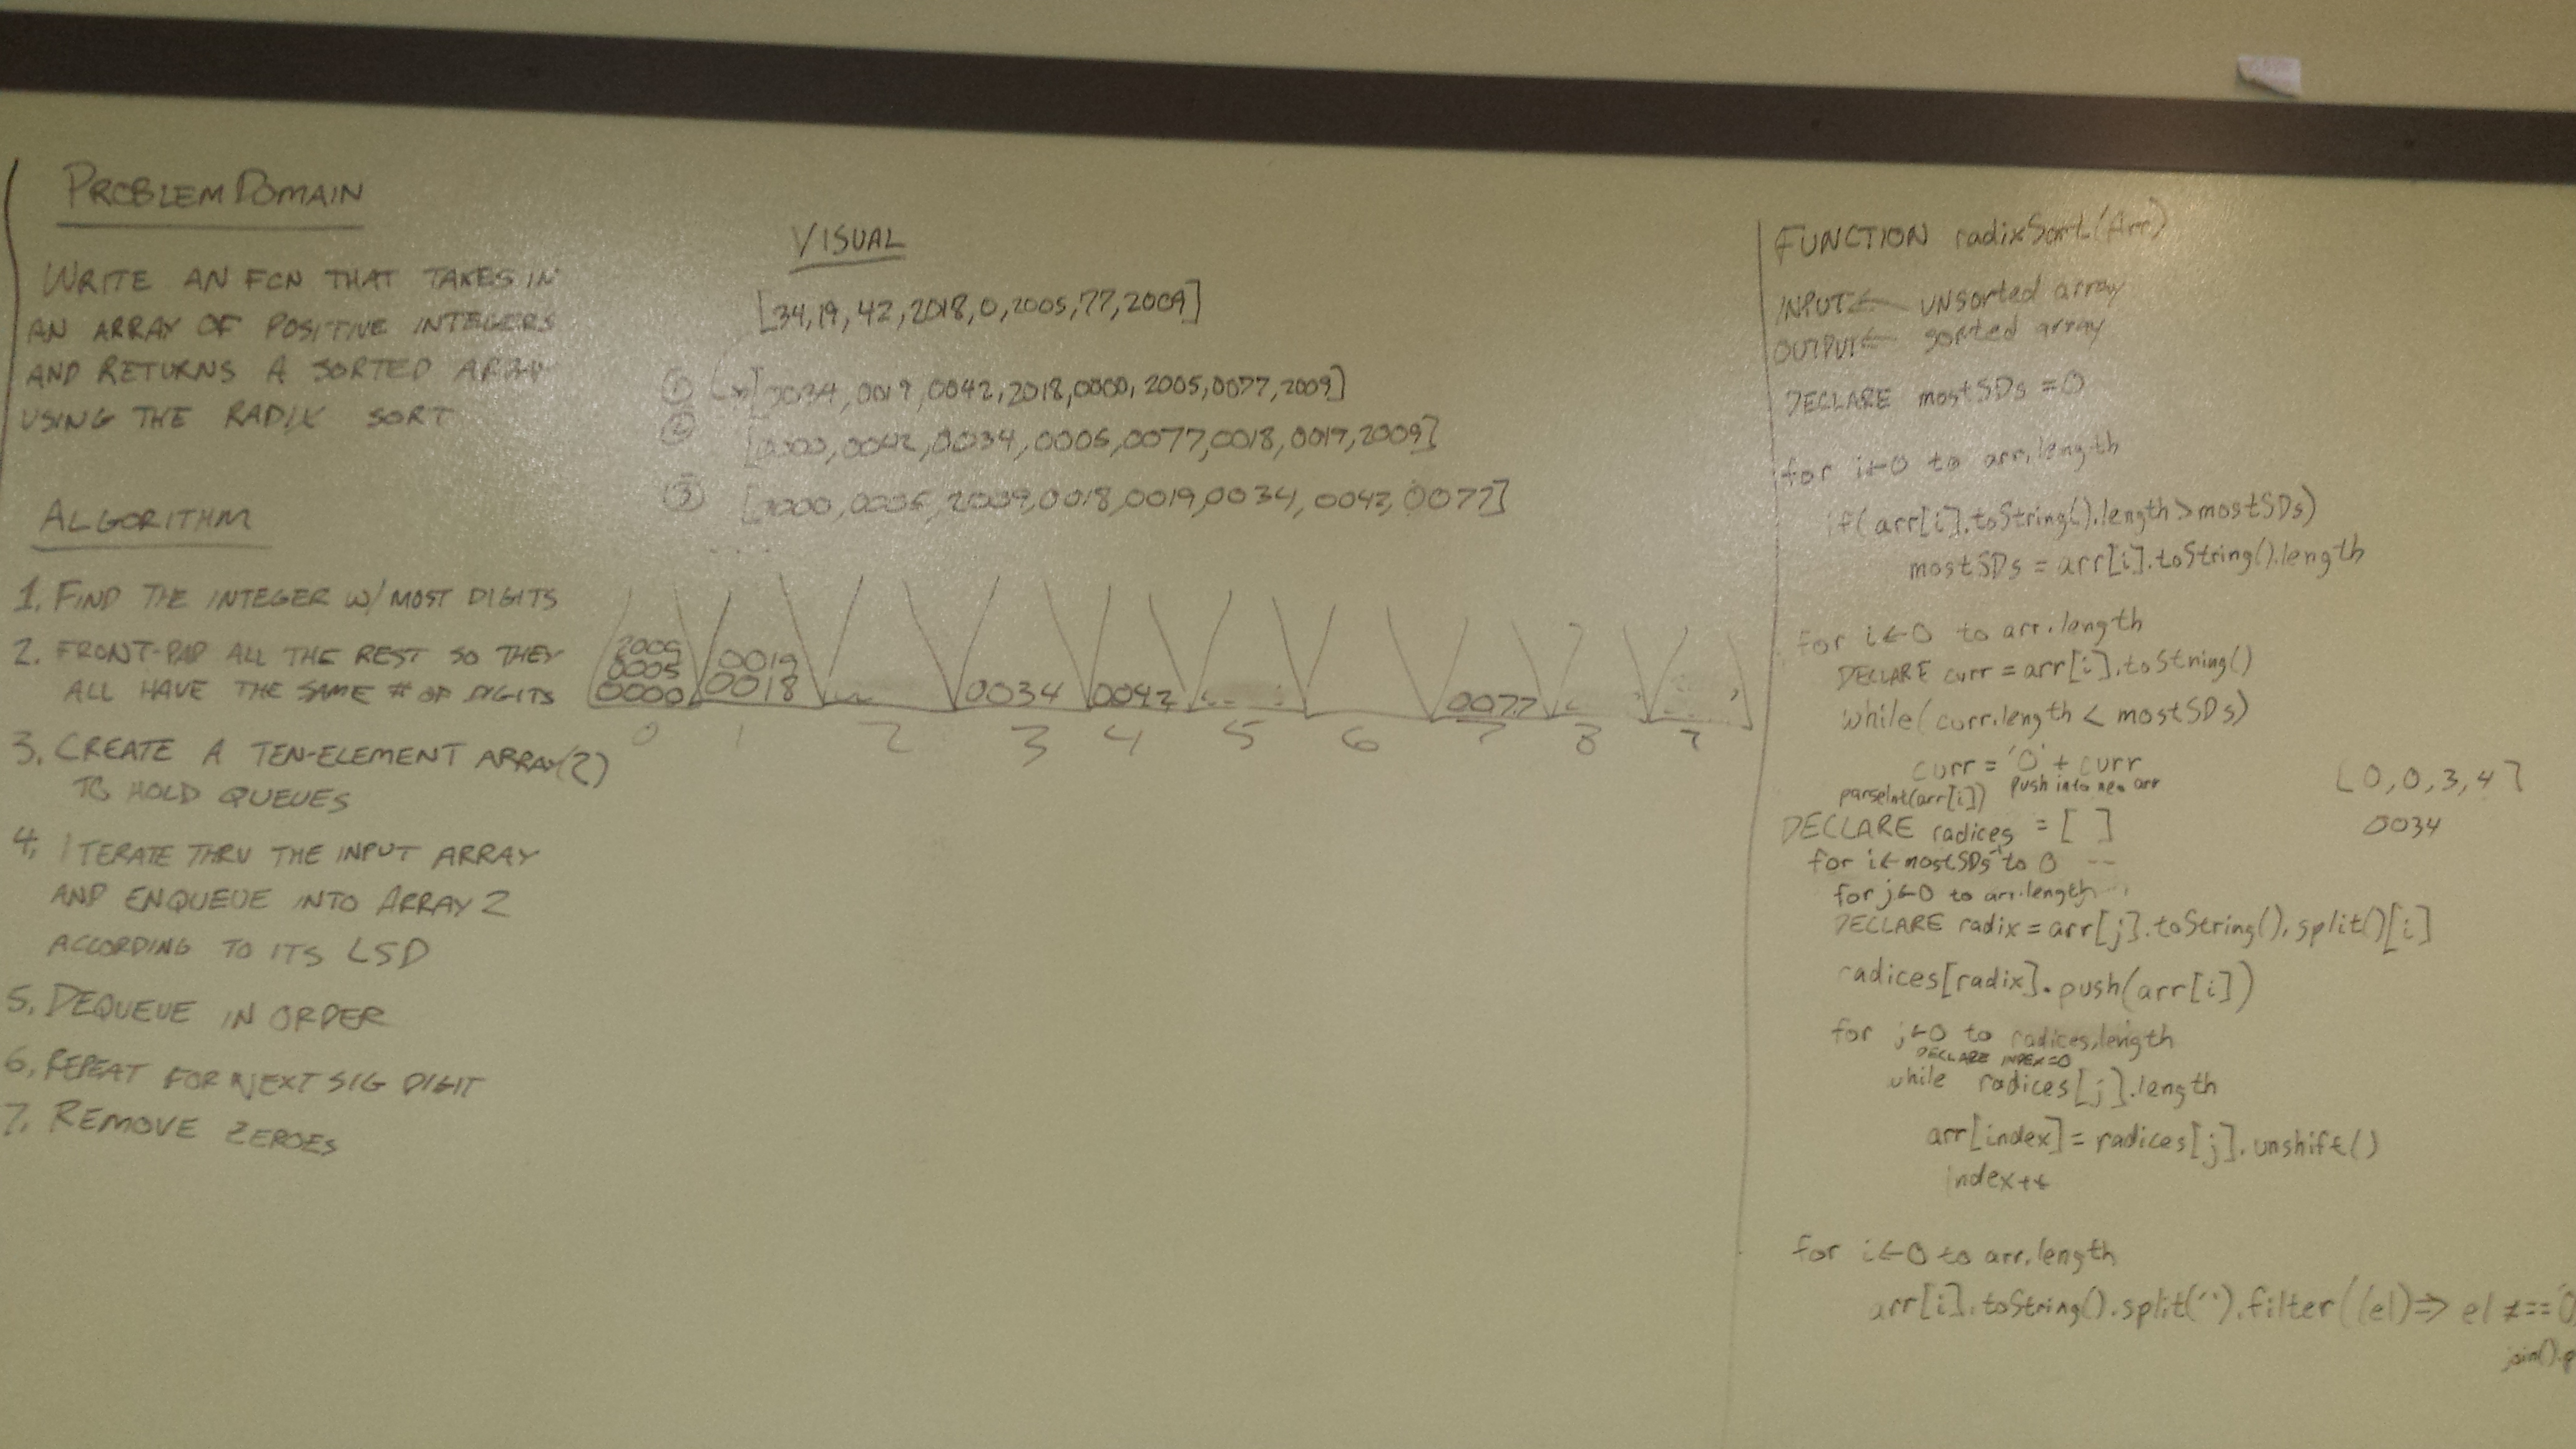 PROBLEM DOMAIN
WRITE AN FCN THAT TAKES IN
AN ARRAY OF POSITIVE INTEGERS
AND RETURNS A SORTED ARRAY
USING THE RADIX SORT
ALGORITHM
1. FIND THE INTEGER W/ MOST DIGITS
2. FRONT-PAD ALL THE REST SO THEY
ALL HAVE THE SAME # OF DIGITS
3. CREATE A TEN-ELEMENT ARRAY(2)
TO HOLD QUEUES
4. ITERATE THRU THE INPUT ARRAY
AND ENQUEUE INTO ARRAY 2
ACCORDING TO ITS LSD
5. DEQUEUE IN ORDER
6. REPEAT FOR NEXT SIG DIGIT
7. REMOVE ZEROES
VISUAL
[34,19,42,2018,0,2005,77,2009]
① [0034,0019,0042,2018,0000,2005,0077,2009]
② [0000,0042,0034,0005,0077,0018,0019,2009]
③ [0000,0005,2009,0018,0019,0034,0042,0077]
....
2009
0005 0019
0000 0018 0034 0042 0077
0 1 2 3 4 5 6 7 8
FUNCTION radixSort(Arr)
INPUT ← unsorted array
OUTPUT ← sorted array
DECLARE mostSDs = 0
for i ← 0 to arr.length
if(arr[i].toString().length > mostSDs)
mostSDs = arr[i].toString().length
for i ← 0 to arr.length
DECLARE curr = arr[i].toString()
while(curr.length < mostSDs)
curr = '0' + curr
parseInt(arr[i]) push into new arr
[0,0,3,4]
0034
DECLARE radices = [ ]
for i ← mostSDs-1 to 0 --
for j ← 0 to arr.length
DECLARE radix = arr[j].toString().split()[i]
radices[radix].push(arr[i])
for j ← 0 to radices.length
DECLARE INDEX=0
while radices[j].length
arr[index] = radices[j].unshift()
index++
for i ← 0 to arr.length
arr[i].toString().split('').filter((el) => el ≠== '0
join().p